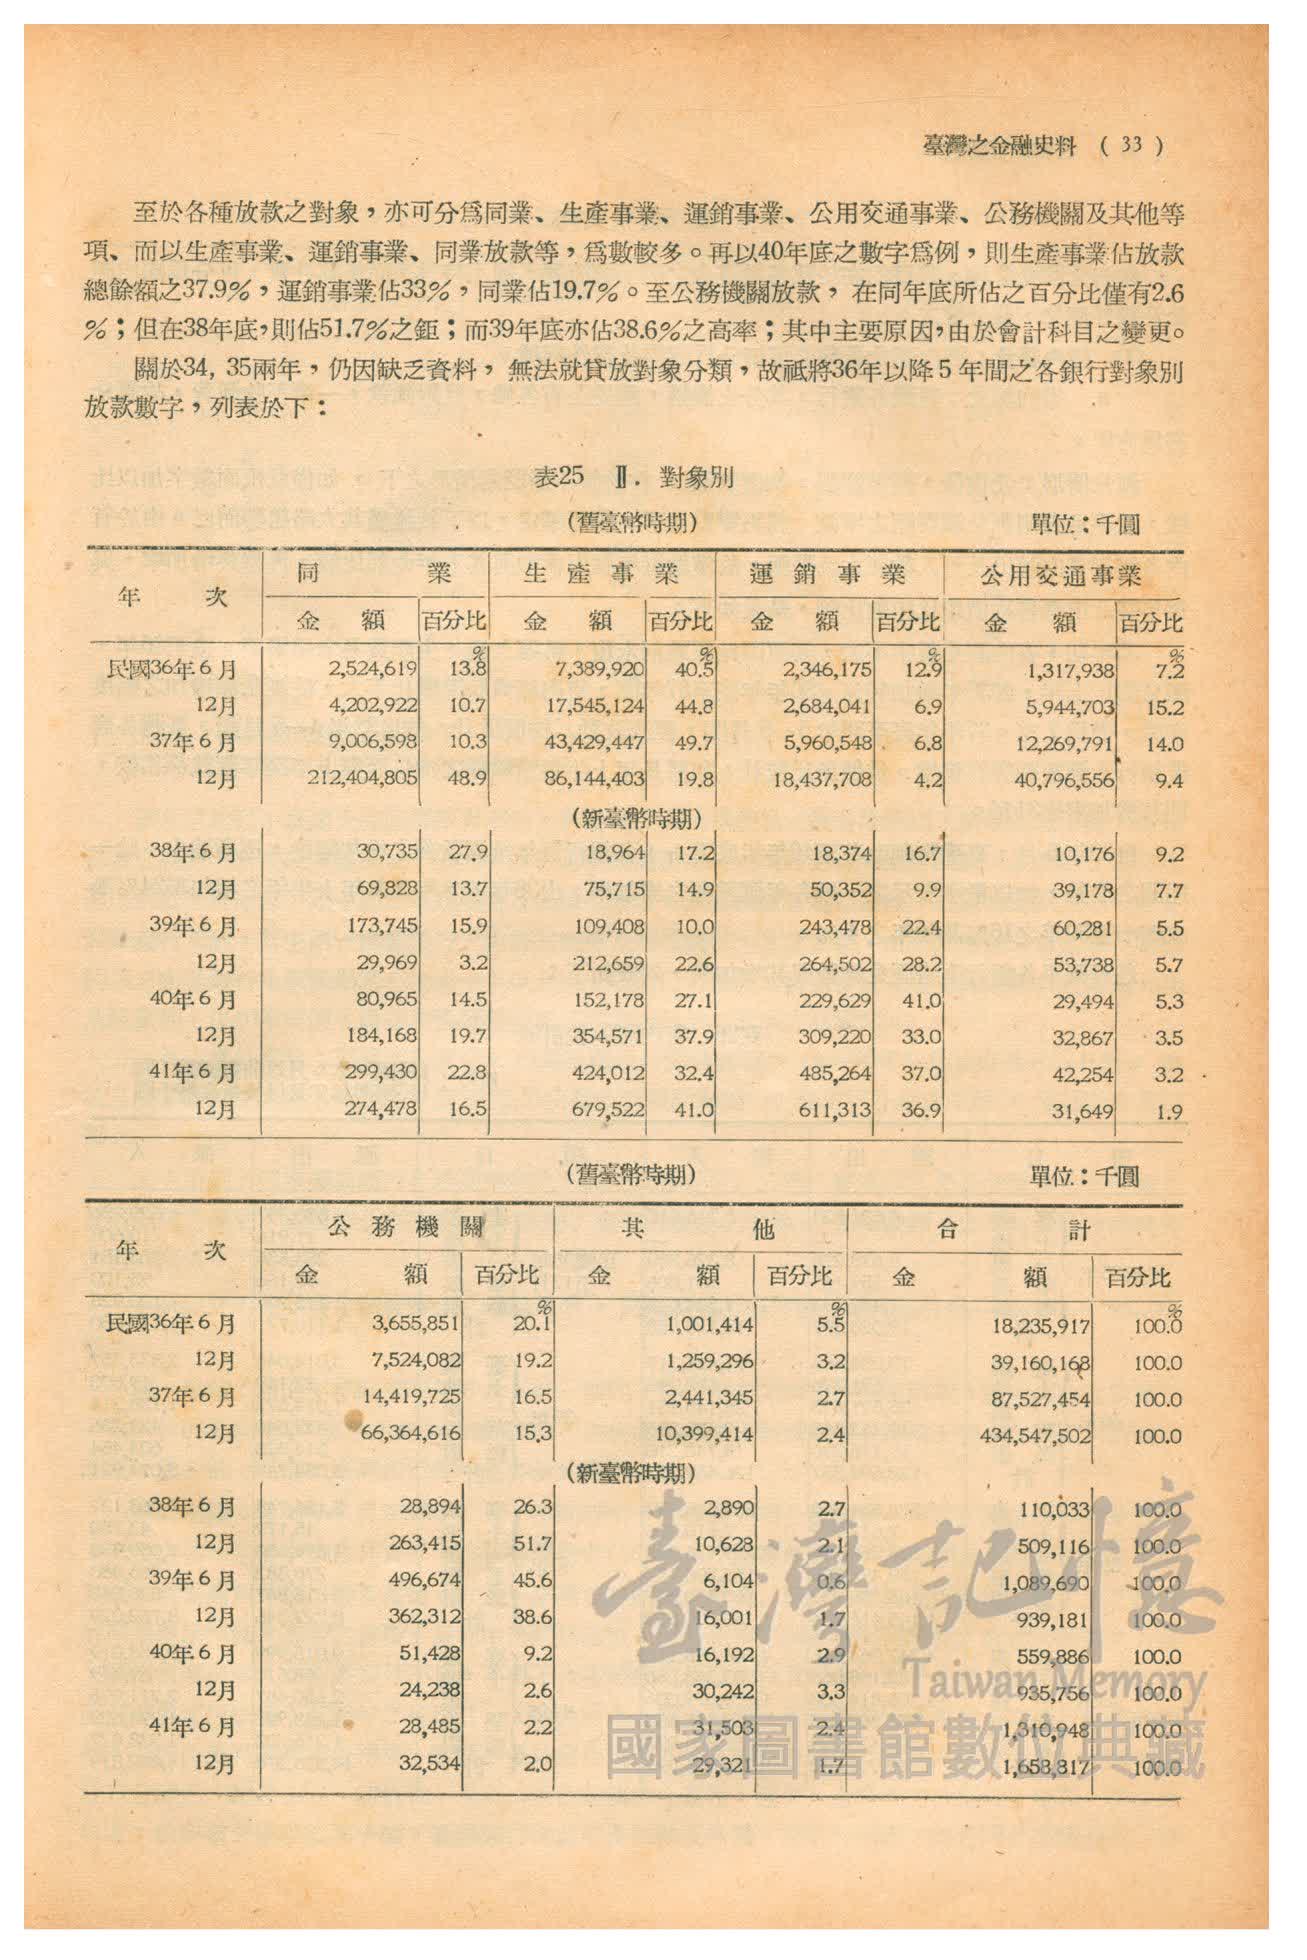 臺灣之金融史料 ( 33 )
至於各種放款之對象，亦可分爲同業、生產事業、運銷事業、公用交通事業、公務機關及其他等
項、而以生產事業、運銷事業、同業放款等，爲數較多。再以40年底之數字爲例，則生產事業佔放款
總餘額之37.9%，運銷事業佔33%，同業佔19.7%。至公務機關放款，在同年底所佔之百分比僅有2.6
%；但在38年底，則佔51.7%之鉅；而39年底亦佔38.6%之高率；其中主要原因，由於會計科目之變更。
關於34, 35兩年，仍因缺乏資料，無法就貸放對象分類，故祇將36年以降5年間之各銀行對象別
放款數字，列表於下：
表25 Ⅱ. 對象別
(舊臺幣時期) 單位：千圓
年次 同業 生產事業 運銷事業 公用交通事業
金額 百分比 金額 百分比 金額 百分比 金額 百分比
% % % %
民國36年6月 2,524,619 13.8 7,389,920 40.5 2,346,175 12.9 1,317,938 7.2
12月 4,202,922 10.7 17,545,124 44.8 2,684,041 6.9 5,944,703 15.2
37年6月 9,006,598 10.3 43,429,447 49.7 5,960,548 6.8 12,269,791 14.0
12月 212,404,805 48.9 86,144,403 19.8 18,437,708 4.2 40,796,556 9.4
(新臺幣時期)
38年6月 30,735 27.9 18,964 17.2 18,374 16.7 10,176 9.2
12月 69,828 13.7 75,715 14.9 50,352 9.9 39,178 7.7
39年6月 173,745 15.9 109,408 10.0 243,478 22.4 60,281 5.5
12月 29,969 3.2 212,659 22.6 264,502 28.2 53,738 5.7
40年6月 80,965 14.5 152,178 27.1 229,629 41.0 29,494 5.3
12月 184,168 19.7 354,571 37.9 309,220 33.0 32,867 3.5
41年6月 299,430 22.8 424,012 32.4 485,264 37.0 42,254 3.2
12月 274,478 16.5 679,522 41.0 611,313 36.9 31,649 1.9
(舊臺幣時期) 單位：千圓
年次 公務機關 其他 合計
金額 百分比 金額 百分比 金額 百分比
% % %
民國36年6月 3,655,851 20.1 1,001,414 5.5 18,235,917 100.0
12月 7,524,082 19.2 1,259,296 3.2 39,160,168 100.0
37年6月 14,419,725 16.5 2,441,345 2.7 87,527,454 100.0
12月 66,364,616 15.3 10,399,414 2.4 434,547,502 100.0
(新臺幣時期)
38年6月 28,894 26.3 2,890 2.7 110,033 100.0
12月 263,415 51.7 10,628 2.1 509,116 100.0
39年6月 496,674 45.6 6,104 0.6 1,089,690 100.0
12月 362,312 38.6 16,001 1.7 939,181 100.0
40年6月 51,428 9.2 16,192 2.9 559,886 100.0
12月 24,238 2.6 30,242 3.3 935,756 100.0
41年6月 28,485 2.2 31,503 2.4 1,310,948 100.0
12月 32,534 2.0 29,321 1.7 1,658,817 100.0
臺灣記憶
Taiwan Memory
國家圖書館數位典藏